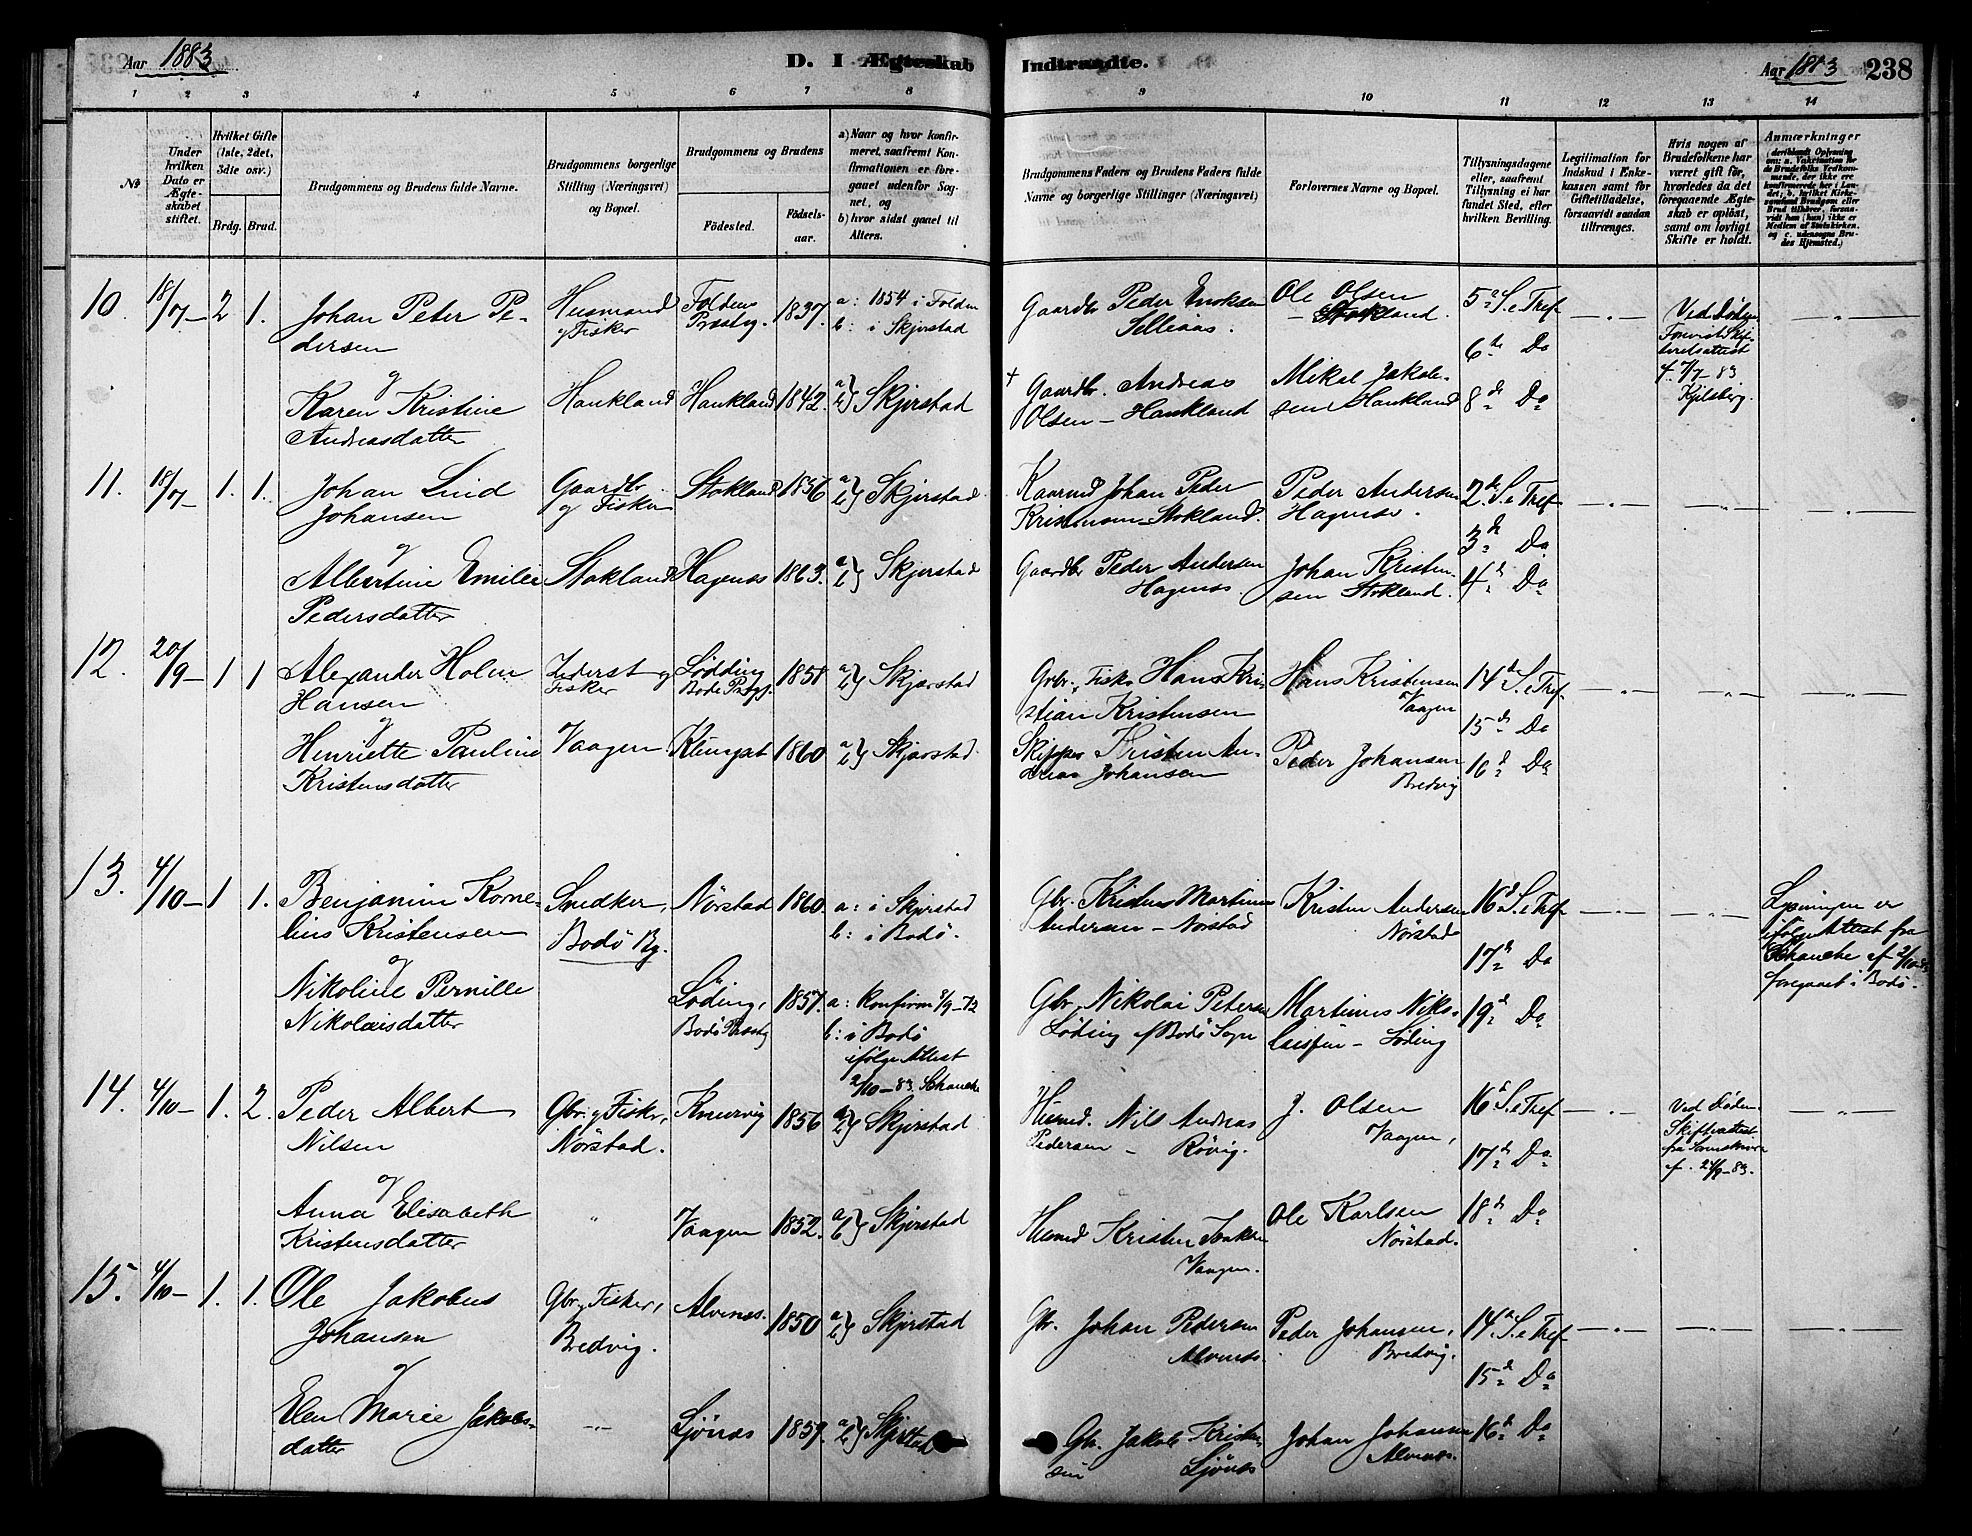 Aar 1883
D. I Ægteskab
Indtraadte.
Aar 1883
238
1 2 3 4 5 6 7 8 9 10 11 12 13 14
No
Under hvilken Dato er Ægteskabet stiftet.
Hvilket Gifte (1ste, 2det, 3die osv.)
Brdg. Brud.
Brudgommens og Brudens fulde Navne.
Brudgommens borgerlige Stilling (Næringsvei) og Bopæl.
Brudgommens og Brudens
Fødested.
Fødselsaar.
a) Naar og hvor konfirmeret, saafremt Konfirmationen er foregaaet udenfor Sognet, og
b) hvor sidst gaaet til Alters.
Brudgommens Faders og Brudens Faders fulde Navne og borgerlige Stillinger (Næringsvei)
Forlovernes Navne og Bopæl.
Tillysningsdagene eller, saafremt Tillysning ei har fundet Sted, efter hvilken Bevilling.
Legitimation for Indskud i Enkekassen samt for Giftetilladelse, forsaavidt saadan tiltrænges.
Hvis nogen af Brudefolkene har været gift før, hvorledes da det foregaaende Ægteskab er opløst, samt om lovligt Skifte er holdt.
Anmærkninger
10. 18/7 2 1. Johan Peter Pedersen
Husmand og Fisker
Foldens Præstg. 1837.
a: 1854 i Folden
b: i Skjerstad
Gaardbr. Peder Enoksen
Ole Olsen
Stokland.
5te S. e Tref
6te Do
8de Do
Ved Døden
f. 7/7-83
og
Karen Kristine Andreasdatter
Haukland Haukland 1842. a) b) Skjerstad
+ Gaardbr. Andreas Olsen - Haukland
Mikal Jakobsen Haukland
11. 18/7 1. 1. Johan Lind Johansen
Gaardbr og Fisker
Stokland 1856 a) b) Skjerstad
Kaarmd Johan Peder Kristensen Stokland.
Peder Andersen Hagenes.
2de S. e Tref
3de Do
4de Do
og
Albertine Emilie Pedersdatter
Stokland Hagenes 1863. a) b) Skjerstad
Gaardbr Peder Andersen Hagenes
Johan Kristensen Stokland.
12. 20/9 1 1 Alexander Holm Hansen
Inderst og Fisker
Lødding Bodø Prstgj. 1858 a) b) Skjerstad
Grbr. Fisk. Hans Kristian Kristensen
Hans Kristensen Vaagen
14de S. e Tref
15de Do
16de Do
og
Henriette Pauline Kristensdatter
Vaagen Klungset 1860 a) b) Skjerstad
Skipper Kristen Andreas Johansen
Peder Johansen Bredvig
13. 4/10 1 1. Benjamin Kornelius Kristensen
Snedker, Bodø By.
Nørstad 1860.
a: i Skjerstad
b: i Bodø.
Gbr. Kristen Martinus Andersen - Nørstad
Kristen Andersen Nørstad
16de S. e Tref
17de Do
19de Do
Lysningen er ifølge Attest fra Schanche af 2/10-83 foregaaet i Bodø.
og
Nikoline Pernille Nikolaisdatter
Løding, Bodø Præstg 1857.
a: Konfirm 8/9-72
b: i Bodø
ifølge Attest
2/10-83. Schanche
Gbr. Nikolai Petersen Løding af Bodø Sogn
Martinus Nikolaisen - Løding
14. 4/10 1. 2. Peder Albert Nilsen
Gbr. og Fisker, Nørstad.
Knurvig 1856 a) b) Skjerstad
Husmd. Nils Andreas Pedersen - Røvig.
J. Olsen Vaagen,
16de S. e Tref
17de Do
18de Do
Ved Døden.
Skifteattest
fra Sorenskriver
af. 24/9-83.
og
Anna Elisabeth Kristensdatter
" Vaagen 1852. a) b) Skjerstad
Husmd Kristen Isaksen Vaagen.
Ole Karlsen Nørstad.
15. 4/10 1. 1. Ole Jakobus Johansen
Gbr. og Fisker, Bredvig.
Alvenes. 1850 a) b) Skjerstad
Gbr. Johan Pedersen Alvenes.
Peder Johansen, Bredvig.
14de S. e Tref
15de Do
16de Do
og
Elen Marie Jakobsdatter
-"- Ljønes 1857. a) b) Skjerstad
Gbr. Jakob Kristensen Ljønes
Johan Johansen Alvenes.